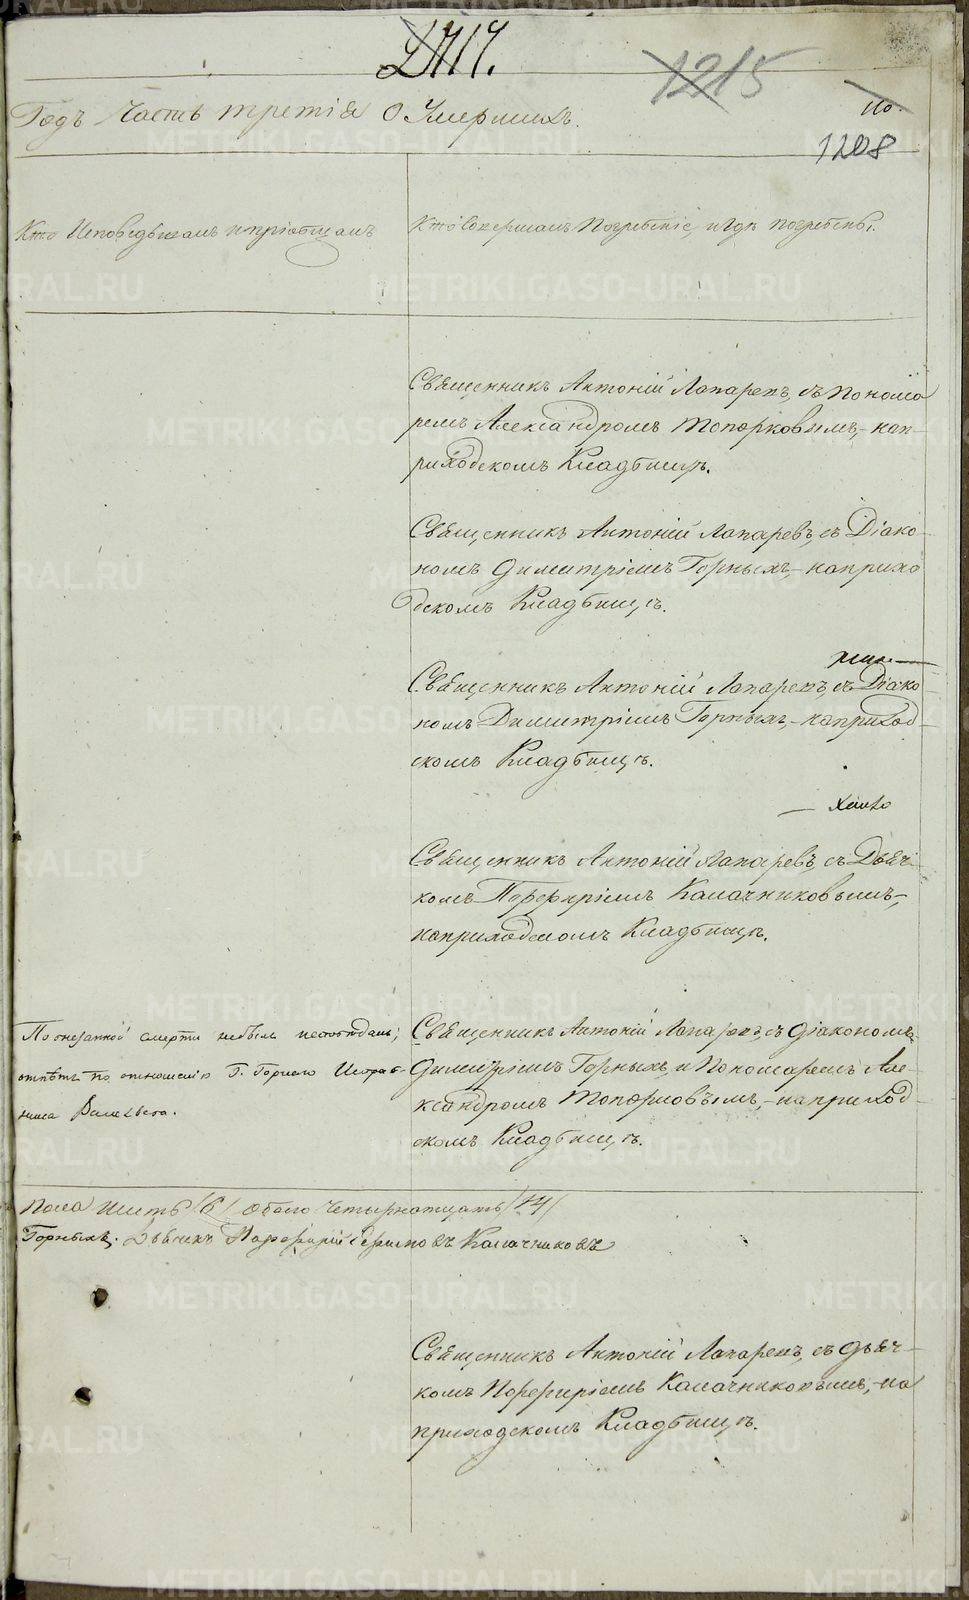 1215
1208
Годъ Часть третія О Умершихъ.
Кто Исповедывалъ и пріобщалъ
Кто Совершалъ Погребеніе, и где погребены.
Священникъ Антоній Лапаревъ, съ Понома
ремъ Александромъ Топорковымъ,- на п
риходскомъ Кладбище.
Священникъ Антоній Лапаревъ, съ Діако-
номъ Димитріемъ Горныхъ,- на прихо
дскомъ Кладбище.
Священникъ Антоній Лапаревъ, съ Діако-
номъ Димитріемъ Горныхъ,- на приход-
скомъ Кладбище.
Священникъ Антоній Лапаревъ, съ Дьяч-
комъ Порфиріемъ Калачниковымъ,-
на приходскомъ Кладбище.
По внезапной смерти небылъ исповеданъ;
отпетъ по отношенію Г. Горнаго Исправ-
ника
Священникъ Антоній Лапаревъ, съ Діакономъ
Димитріемъ Горныхъ, и Пономаремъ Але-
ксандромъ Топорковымъ,- на приход-
скомъ Кладбище.
Пола шесть /6/ Обоего Четырнатцать /14/
Горныхъ. Дьячикъ Порфирій Калачниковъ
Священникъ Антоній Лапаревъ, съ Дьяч-
комъ Порфиріемъ Калачниковымъ,- на
приходскомъ Кладбище.
METRIKI.GASO-URAL.RU